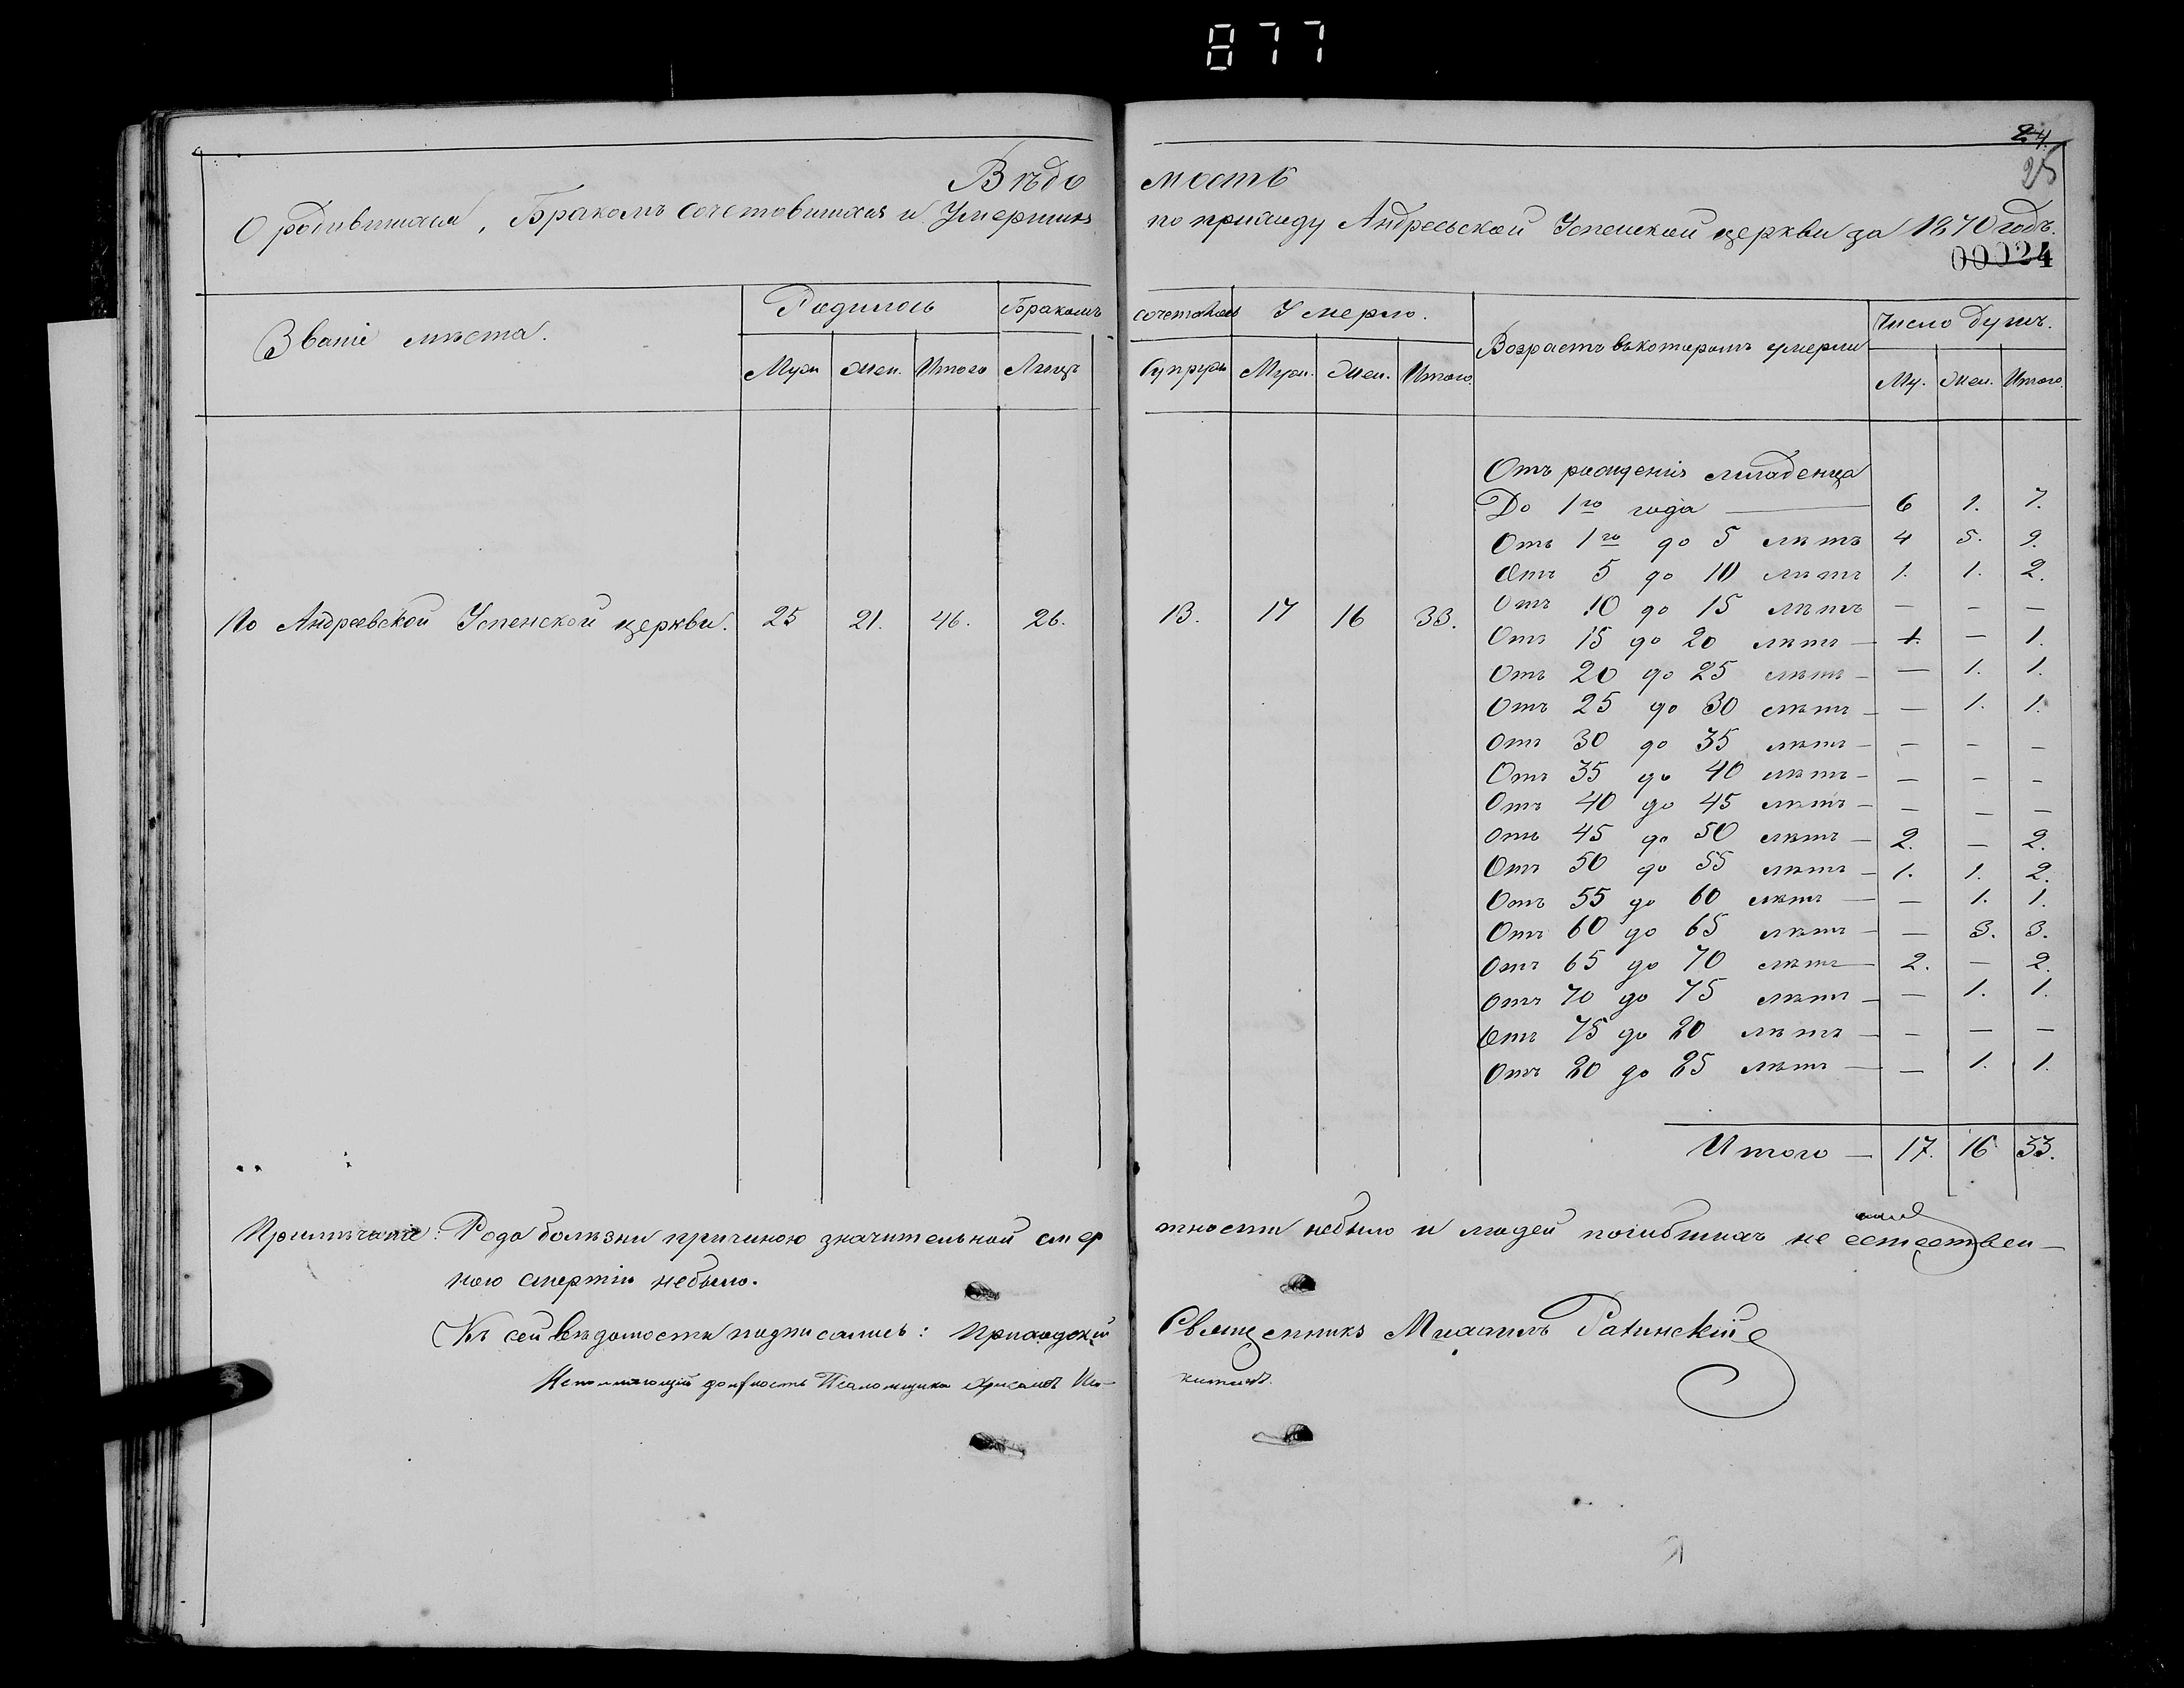 877
24.
25
Вѣдомость
О родившихся, Бракомъ сочетовшихся и Умершихъ по приходу Андреевской Успенской церкви за 1870 годъ.
00024
Званіе мѣста. Родилось Бракомъ сочеталось Умерло. Возрастъ въ которомъ умерли Число душъ.
Муж Жен. Итого Лицъ Супруж Муж. Жен. Итого. Му. Жен. Итого.
Отъ рожденія младенца
До 1го года 6 1. 7.
Отъ 1го до 5 лѣтъ 4 5. 9.
Отъ 5 до 10 лѣтъ 1. 1. 2.
Отъ 10 до 15 лѣтъ — — —
По Андреевской Успенской церкви. 25 21. 46. 26. 13. 17 16 33.
Отъ 15 до 20 лѣтъ — 1. — 1.
Отъ 20 до 25 лѣтъ — — 1. 1.
Отъ 25 до 30 лѣтъ — — 1. 1.
Отъ 30 до 35 лѣтъ — — — —
Отъ 35 до 40 лѣтъ — — — —
Отъ 40 до 45 лѣтъ — — — —
Отъ 45 до 50 лѣтъ — 2. — 2.
Отъ 50 до 55 лѣтъ — 1. 1. 2.
Отъ 55 до 60 лѣтъ — — 1. 1.
Отъ 60 до 65 лѣтъ — — 3. 3.
Отъ 65 до 70 лѣтъ — 2. — 2.
Отъ 70 до 75 лѣтъ — — 1. 1.
Отъ 75 до 80 лѣтъ — — — —
Отъ 80 до 85 лѣтъ — — 1. 1.
Итого — 17. 16 33.
Примѣчаніе: Рода болѣзни причиною значительной смертности небыло и людей погибшихъ не естествен—
ною смертію небыло.
Къ сей вѣдомости подписались: Приходскій Священникъ Михаилъ Ратинскій
Исполняющій должность Псаломщика